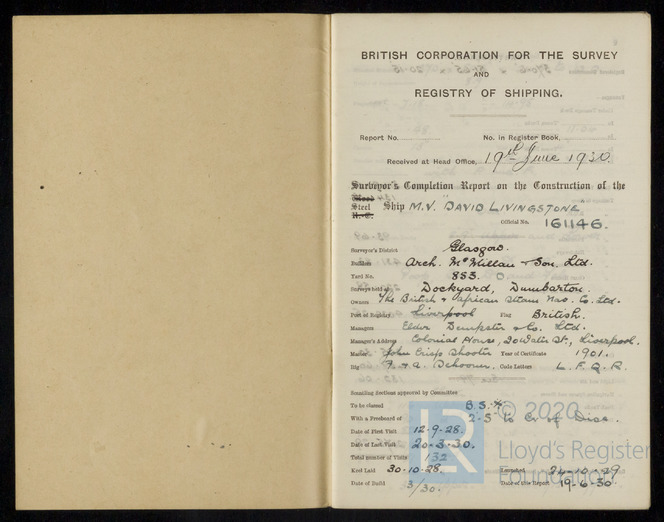 BRITISH CORPORATION FOR THE SURVEY
AND
REGISTRY OF SHIPPING.
Report No.
No. in Register Book,
Received at Head Office, 19th June 1930.
Surveyor's Completion Report on the Construction of the
Steel Ship M.V. "DAVID LIVINGSTONE"
Official No. 161146.
Surveyor's District Glasgow.
Builders Arch. McMillan & Son. Ltd.
Yard No. 883.
Surveys held at Dockyard, Dumbarton.
Owners The British & African Steam Nav. Co. Ltd.
Port of Registry Liverpool Flag British.
Managers Elder Dempster & Co. Ltd.
Manager's Address Colonial House, 20 Water St., Liverpool.
Master John Crisp Shooter Year of Certificate 1901.
Rig F. & A. Schooner. Code Letters L. F. Q. R.
Scantling Sections approved by Committee
To be classed B.S.*
With a Freeboard of to C. of Disc.
Date of First Visit 12-9-28.
Date of Last Visit 20-3-30.
Total number of Visits 132
Keel Laid 30-10-28. Launched 24-10-29
Date of Build 3/30. Date of this Report 19-6-30
© 2020
Lloyd's Register
Foundation